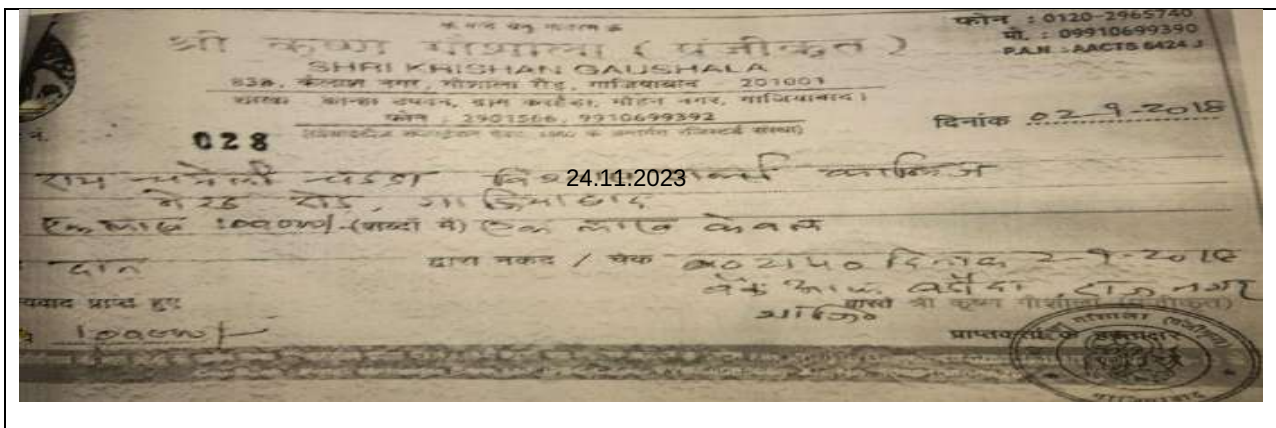 फोन : 0120-2965740
मो. : 09910699390
P.A.N : AACTS 6424 J
श्री कृष्ण गौशाला ( पंजीकृत )
SHRI KRISHAN GAUSHALA
83ए, कैलाश नगर, गौशाला रोड, गाजियाबाद 201001
शाखा कान्हा उपवन, ग्राम करहैडा, मोहन नगर, गाजियाबाद।
फोन : 2901566, 9910699392
दिनांक 02-9-2018
028
24.11.2023
राम चमेली चड्ढा विश्वास गर्ल्स कालिज
रोड, गाजियाबाद
एक लाख 100000/- (शब्दों में) एक लाख केवल
दान द्वारा नकद / चेक 002140 दिनांक 2-9-2018
बैंक आफ बड़ौदा, राज नगर
प्राप्त हुए
वास्ते श्री कृष्ण गौशाला (पंजीकृत)
100000/-